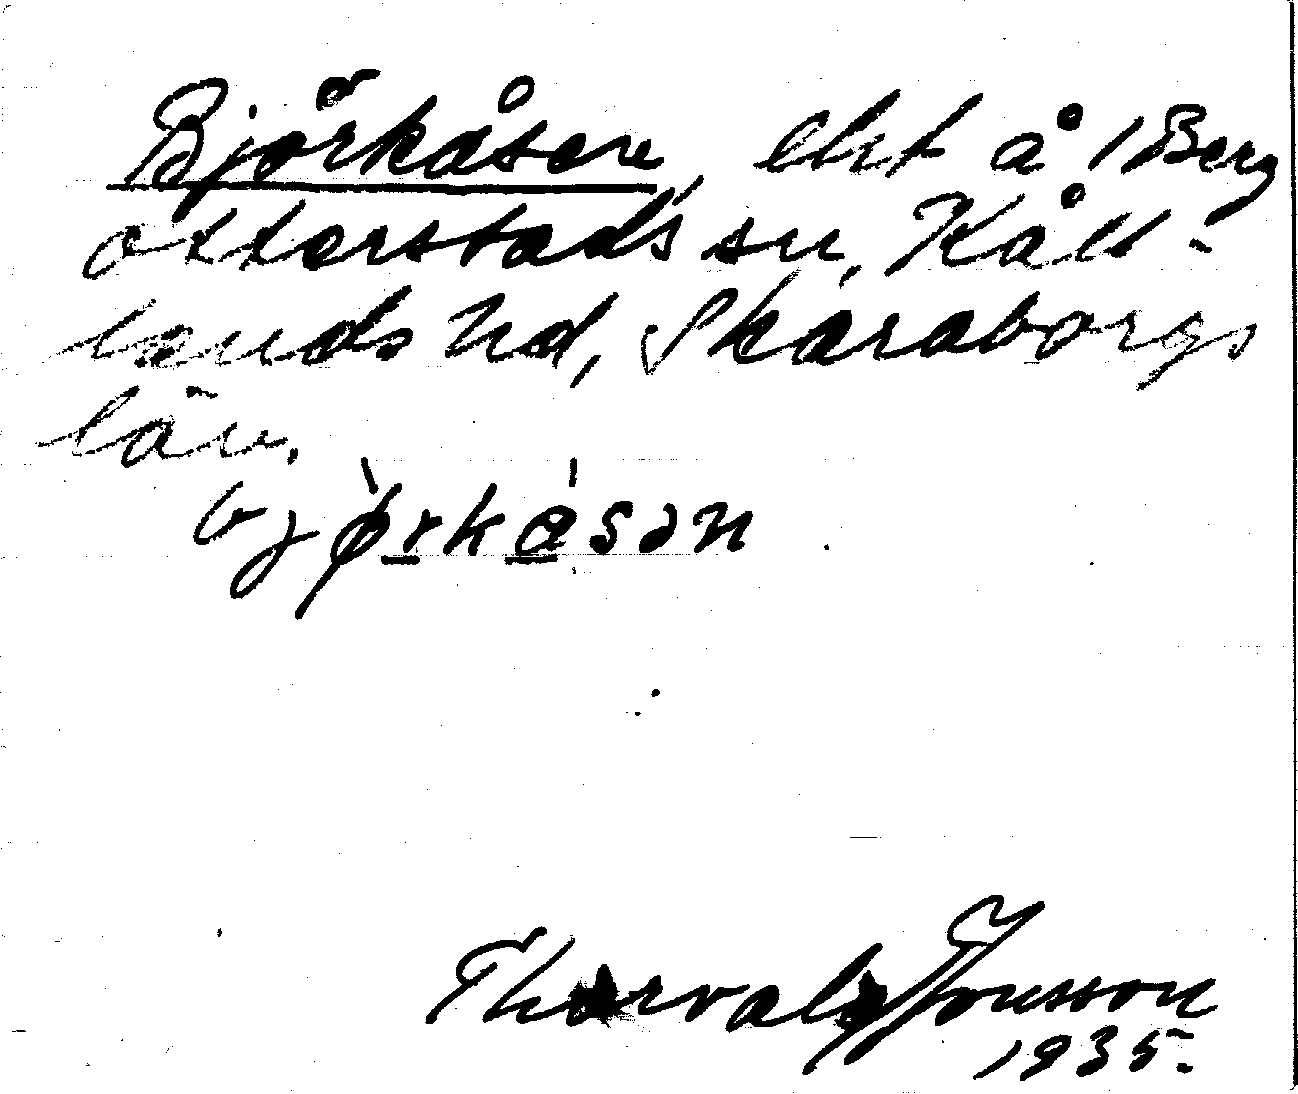 Björkåsen, ett å 1 Berg
otterstads sn, Kåll-
lands hd, Skaraborgs
län.
bjørkåsən
Thorvald Jonsson
1935.